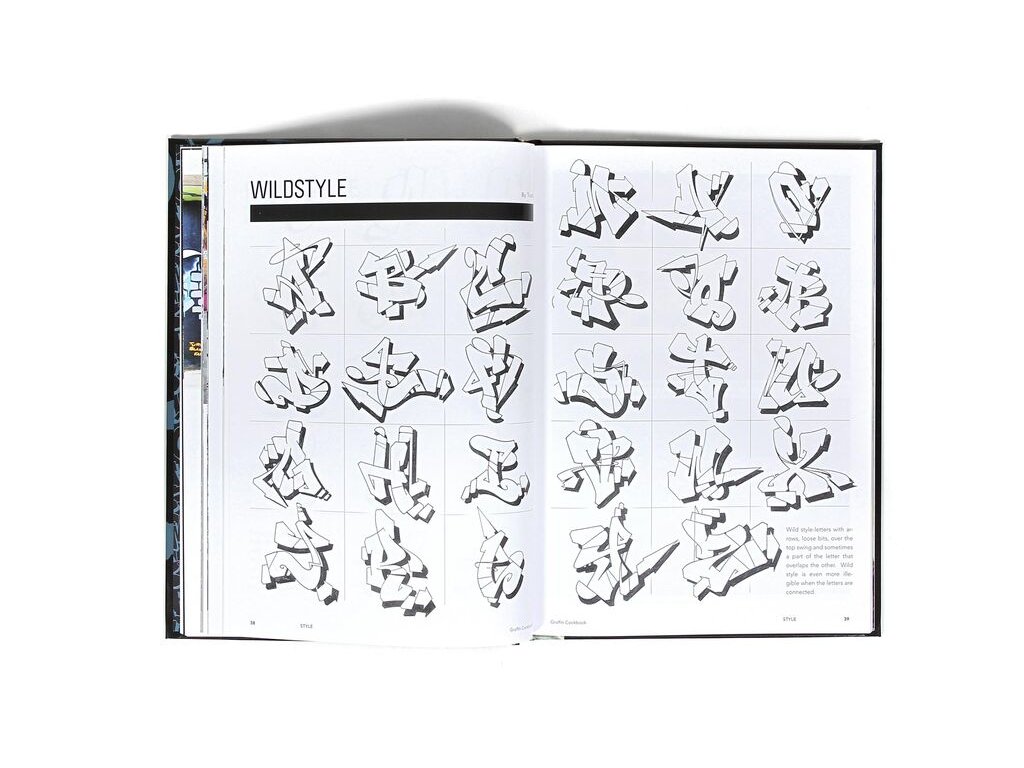 WILDSTYLE
By
A B C
D E F
G H I
J K L
M N O
P Q R
S T U
V W X
Y Z
Wild style-letters with ar-
rows, loose bits, over the
top swing and sometimes
a part of the letter that
overlaps the other. Wild
style is even more ille-
gible when the letters are
connected.
38
STYLE
Graffiti Cookbook
Graffiti Cookbook
STYLE
39